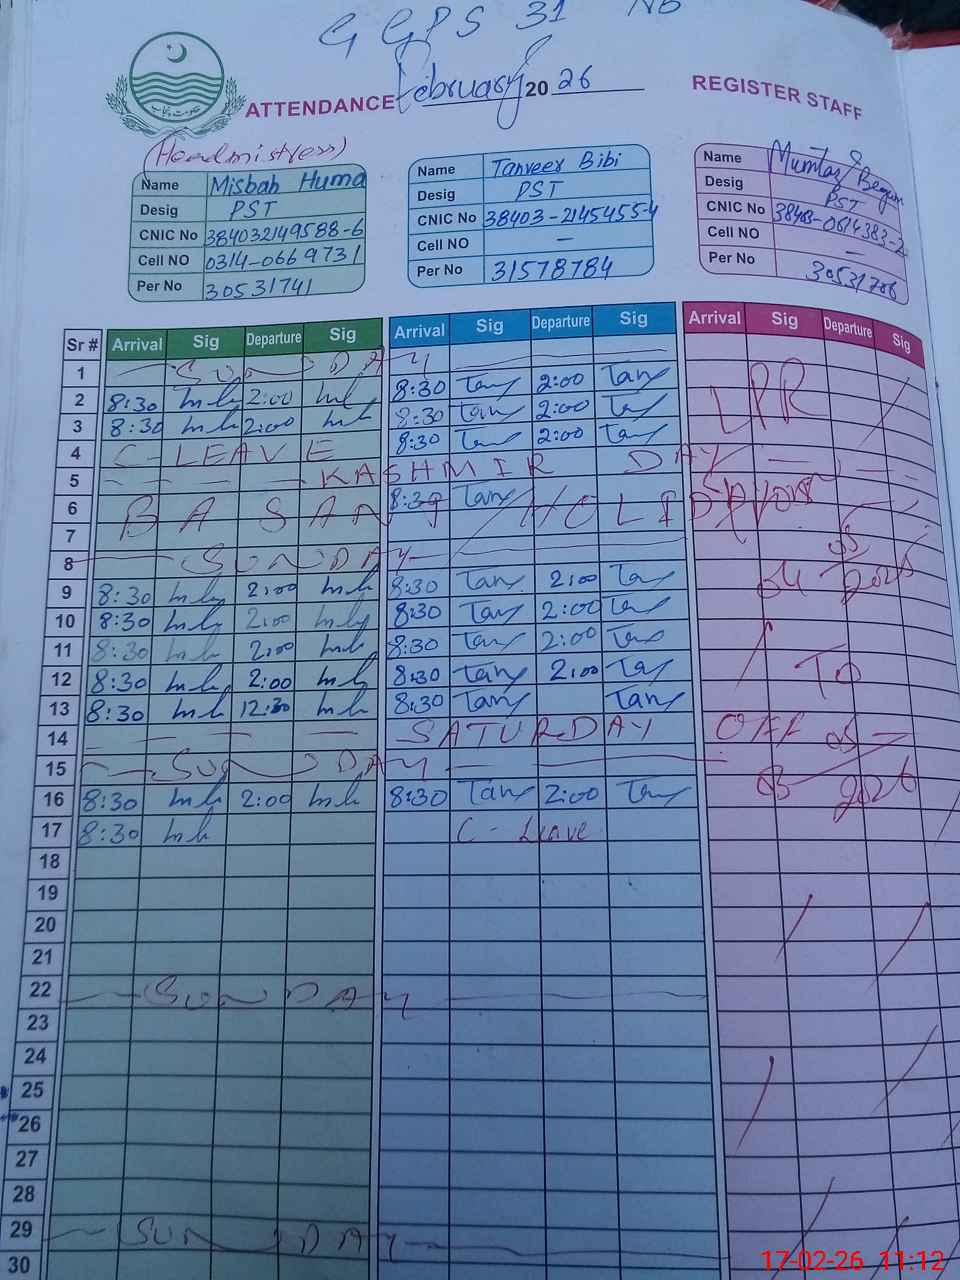 G GPS 31 NB
ATTENDANCE February 2026 REGISTER STAFF
(Headmistress)
Name Misbah Huma
Desig PST
CNIC No 384032149588-6
Cell NO 0314-0669731
Per No 30531741
Name Tanveer Bibi
Desig PST
CNIC No 38403-2145455-4
Cell NO -
Per No 31578784
Name Mumtaz Begum
Desig PST
CNIC No 38403-0614383-2
Cell NO -
Per No 30531706
Sr # Arrival Sig Departure Sig Arrival Sig Departure Sig Arrival Sig Departure Sig
1 SUNDAY
2 8:30 2:00 8:30 Tanv 2:00 Tanv LPR
3 8:30 2:00 8:30 Tanv 2:00
4 C-LEAVE 8:30 Tanv 2:00
5 KASHMIR DAY
6 BASANT HOLIDAY 8:30 Tanv
7
8 SUNDAY
9 8:30 2:00 8:30 Tanv 2:00
10 8:30 2:00 8:30 Tanv 2:00 Tanv
11 8:30 2:00 8:30 Tanv 2:00 Tanv
12 8:30 2:00 8:30 Tanv 2:00 TO
13 8:30 12:30 8:30 Tanv Tanv
14 SATURDAY OFF
15 SUNDAY
16 8:30 2:00 8:30 Tanv 2:00 Tanv 03 2026
17 8:30 C-Leave
18
19
20
21
22 SUNDAY
23
24
25
26
27
28
29 SUNDAY
30
17-02-26 11:12